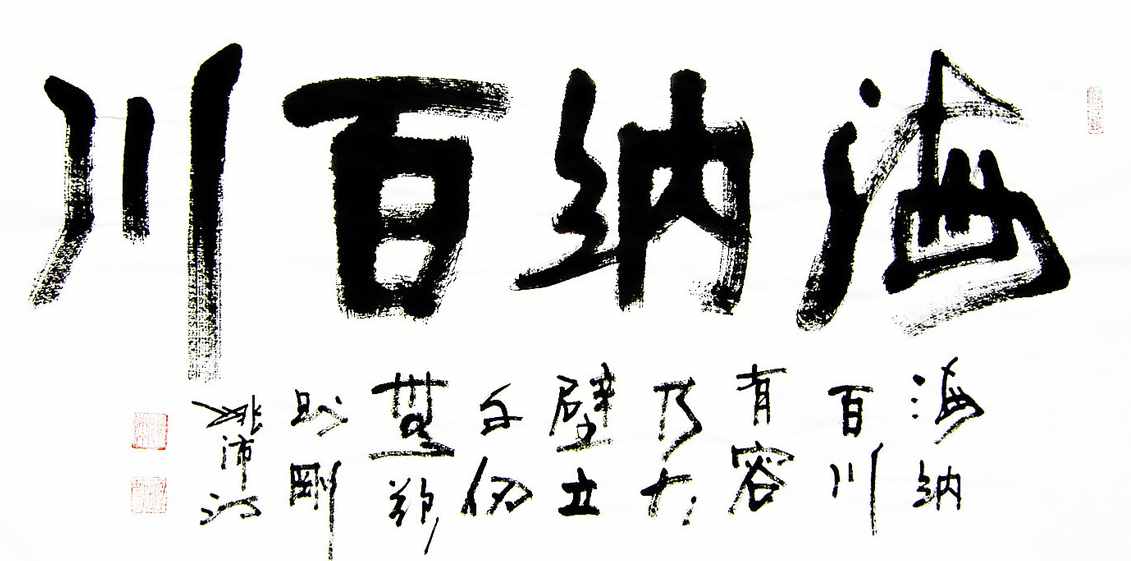 海纳百川
海纳
百川
有容
乃大
壁立
千仞
無欲
则剛
姚沛